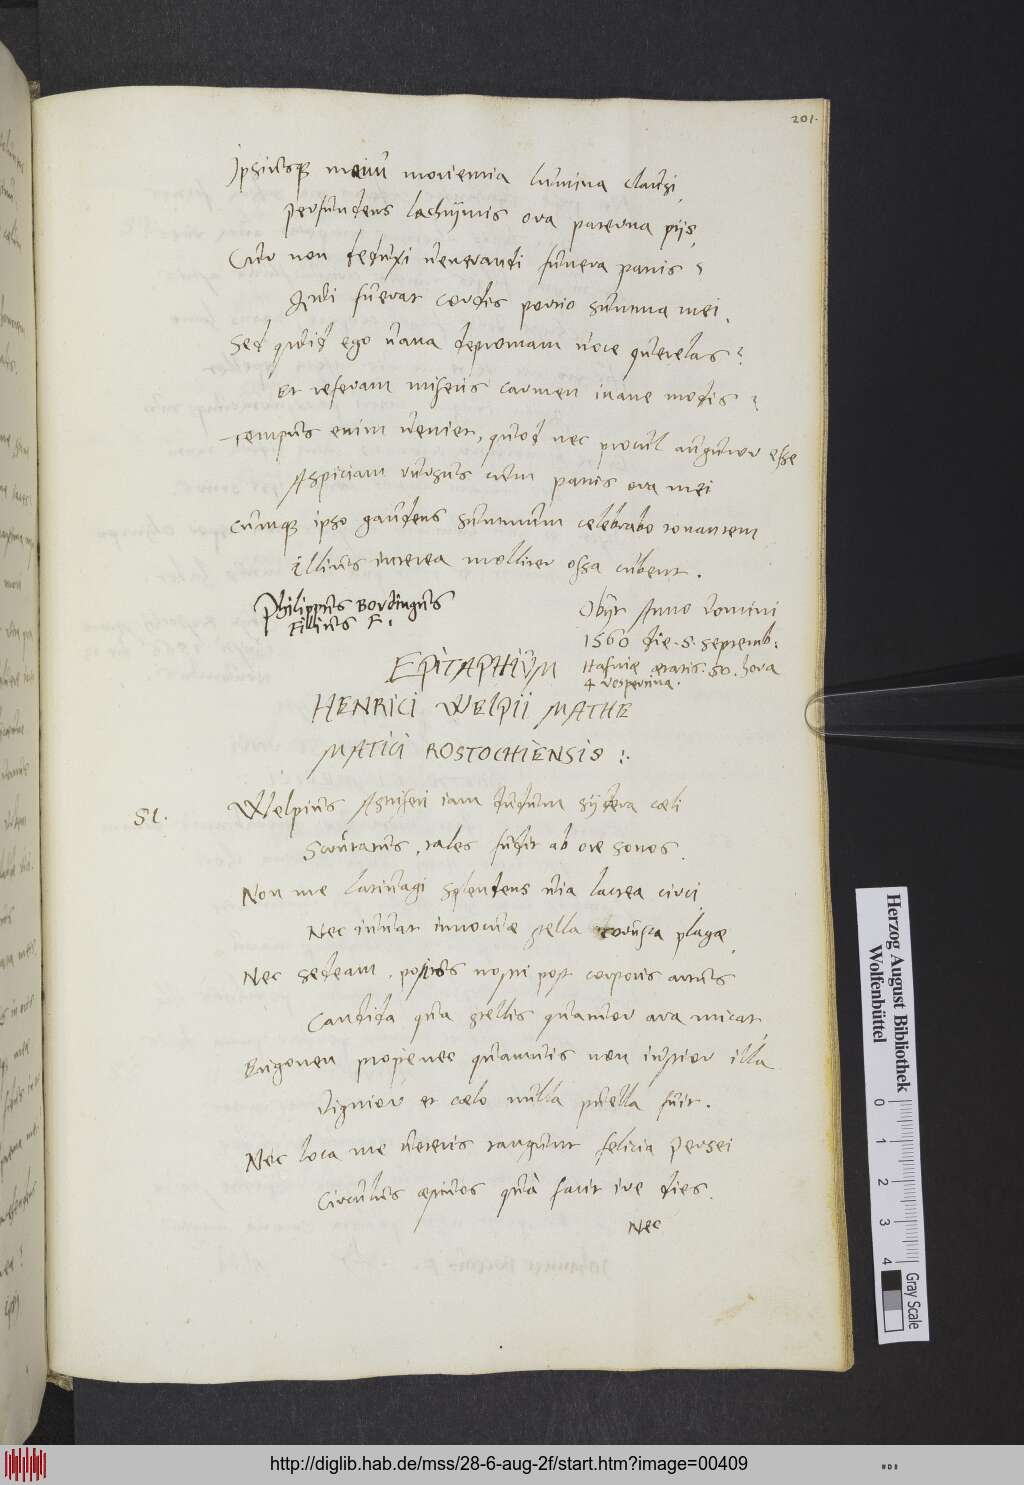 201.
Ipsiusq meiiu morientia lumina clausi,
perfundens lachrÿmis ora paterna pijs,
Cur non deduxi venerandi funera patris?
Qui fuerat cordis portio summa mei.
Sed quid ego vana depromam voce querelas?
Et referam miseris carmen inane modis?
Tempus enim veniet, quod nec procul auguror esse
Aspiciam rursus cum patris ora mei
Cumq ipso gaudens summum celebrabo tonantem
Illius interea molliter ossa cubent.
Philippus Bordingus
Filius F.
Obijt Anno Domini
1560 die .5. septemb:
Hafniæ ætatis .50. hora
4 vespertina.
EPITAPHIUM
HENRICI WELPII MATHE
MATICI ROSTOCHIENSIS :.
51.
Welpius Astriferi iam dudum sÿdera cæli
Scrutatus, tales fudit ab ore sonos.
Non me lativagi splendens via lactea circi
Nec iuvat innocuæ stella corusca plagæ,
Nec sedeam, positos nostri post corporis artus
Candida qua stellis quatuor ara micat,
Erigonen prope nec quamvis non iustior illa
Dignior et cælo nulla puella fuit.
Nec loca me veteris tangunt felicia Persei
Circulus æpiuos quà facit ire dies.
Nec
Herzog August Bibliothek
Wolfenbüttel
0 1 2 3 4
Gray Scale
http://diglib.hab.de/mss/28-6-aug-2f/start.htm?image=00409